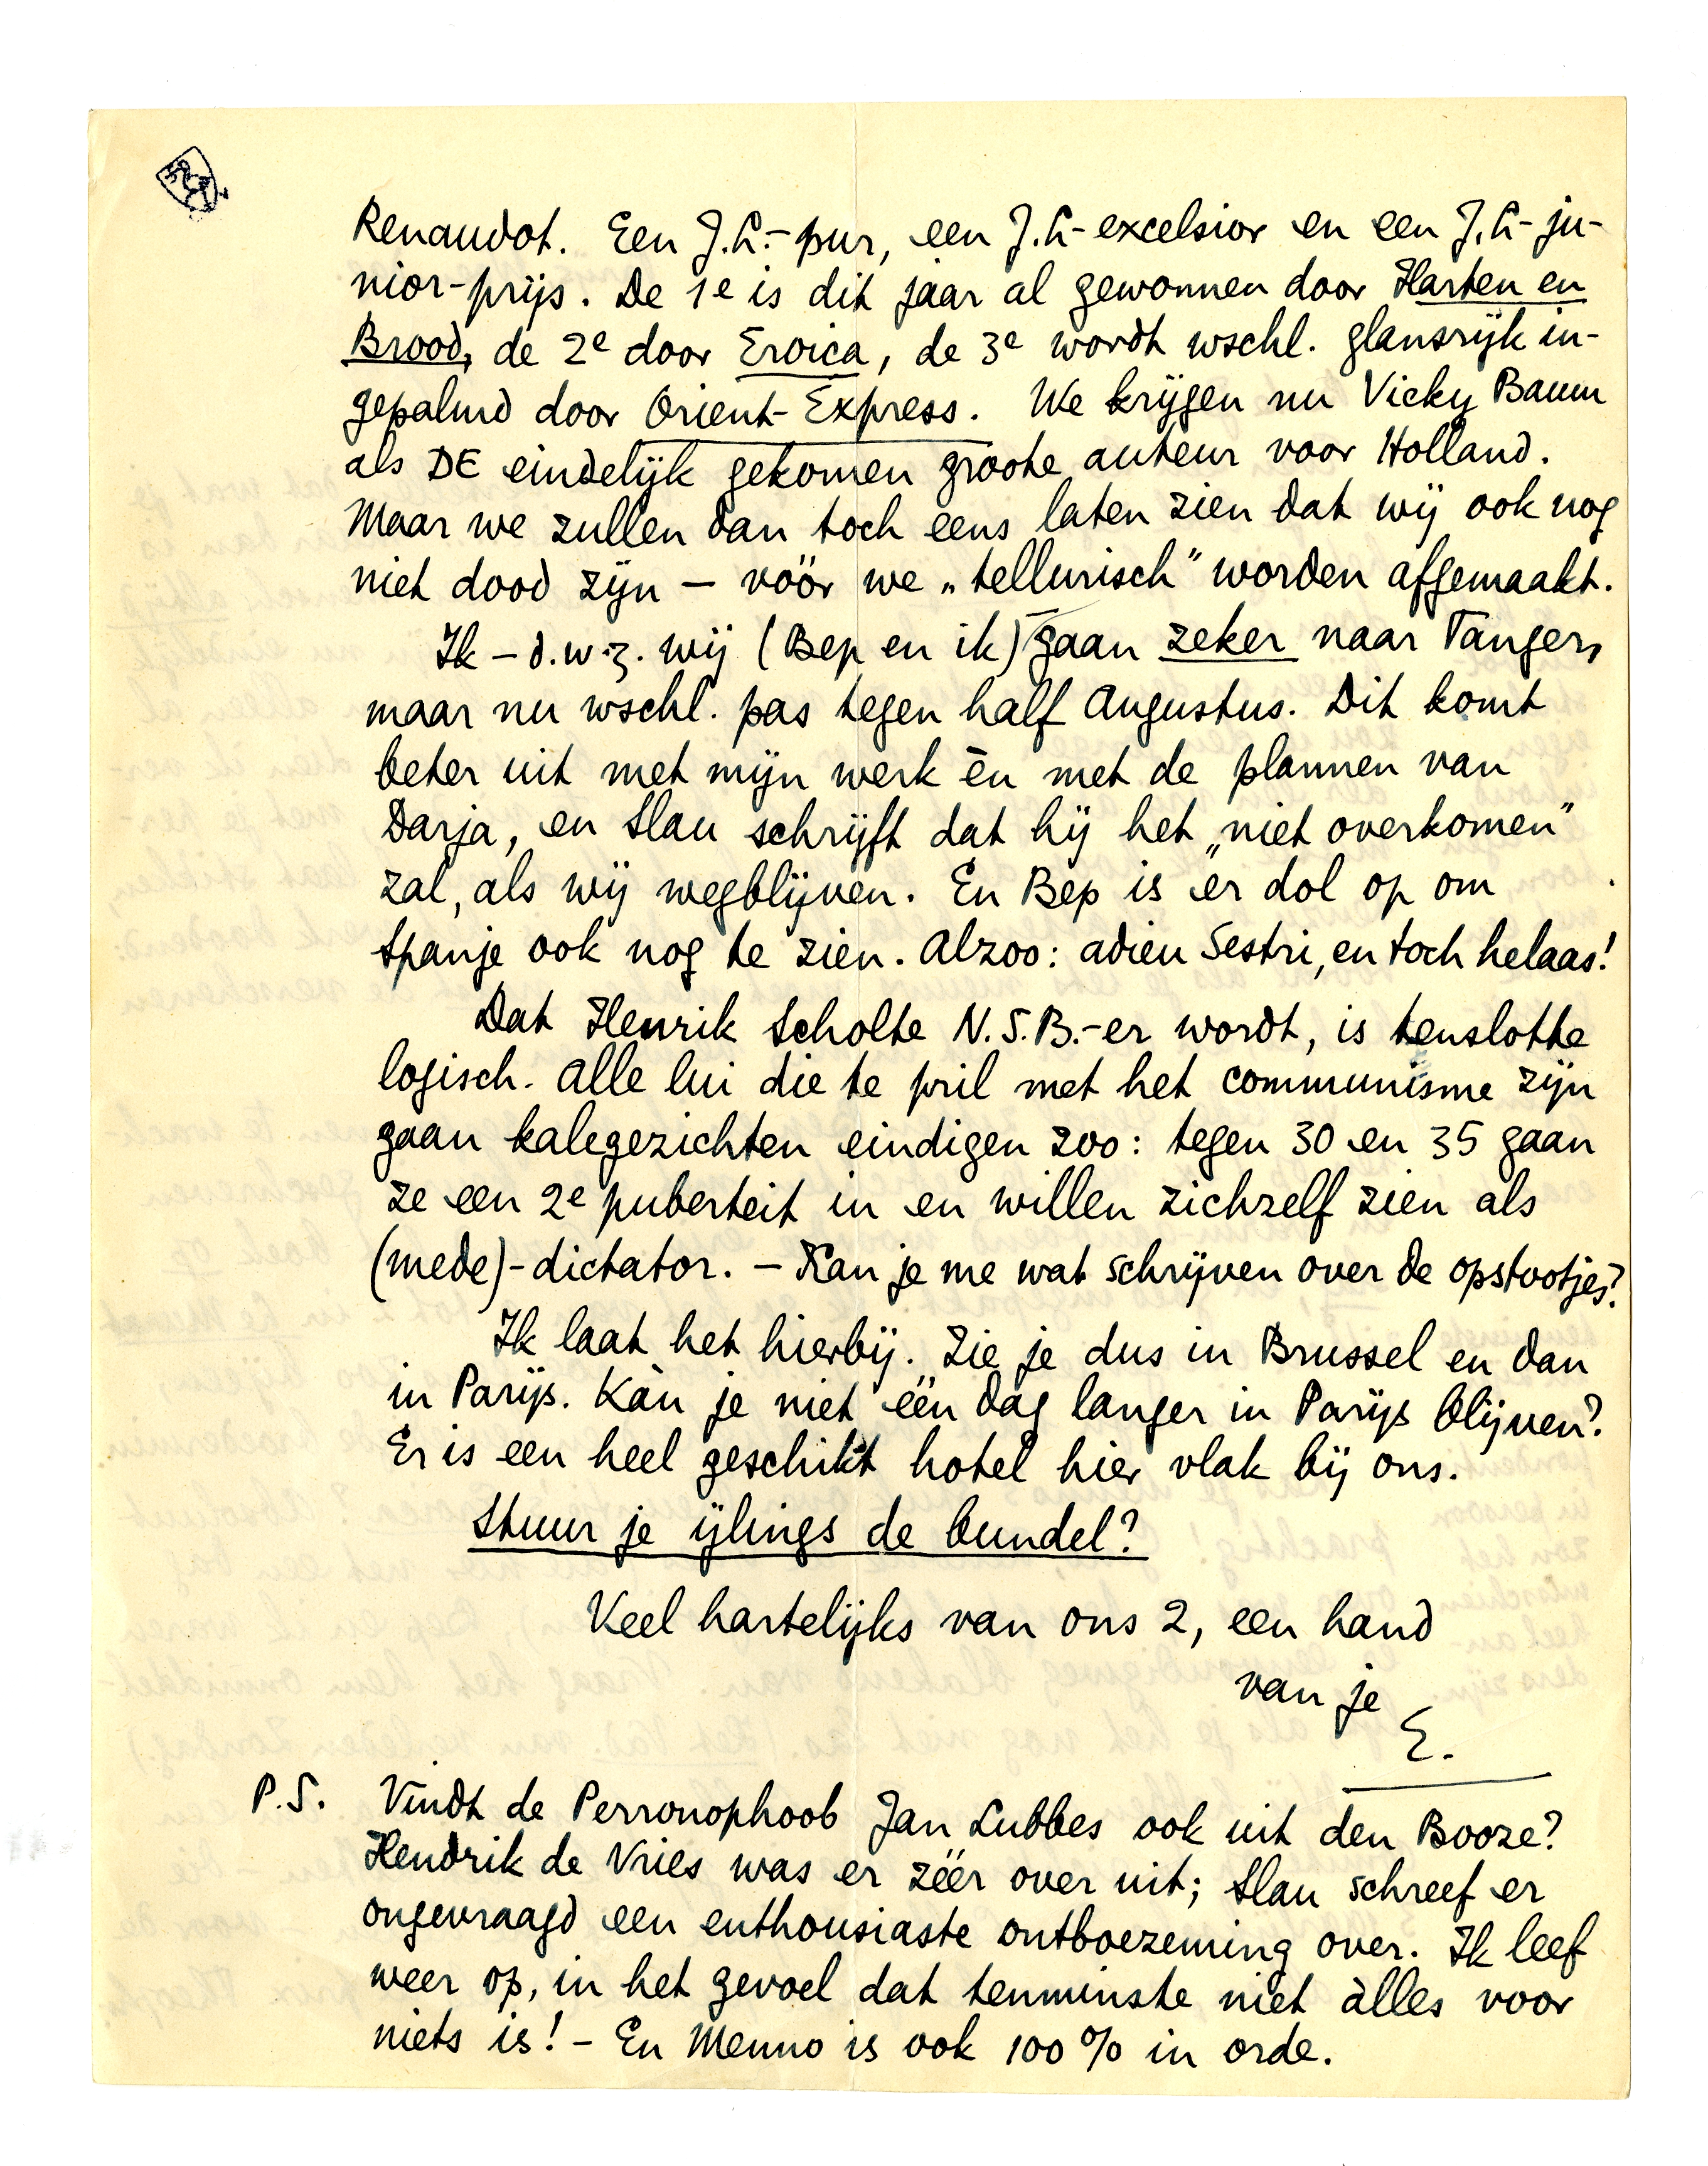 Renaudot. Een J.C.-pur, een J.C-excelsior en een J.C-ju-
nior-prijs. De 1e is dit jaar al gewonnen door Harten en
Brood, de 2e door Eroica, de 3e wordt wschl. glansrijk in-
gepalmd door Orient-Express. We krijgen nu Vicky Baum
als DE eindelijk gekomen groote auteur voor Holland.
Maar we zullen dan toch eens laten zien dat wij ook nog
niet dood zijn – vóór we „tellurisch” worden afgemaakt.
Ik – d.w.z. wij (Bep en ik) gaan zeker naar Tanger,
maar nu wschl. pas tegen half Augustus. Dit komt
beter uit met mijn werk èn met de plannen van
Darja, en Slau schrijft dat hij het „niet overkomen”
zal, als wij wegblijven. En Bep is er dol op om
Spanje ook nog te zien. Alzoo: adieu Sestri, en toch helaas!
Dat Henrik Scholte N.S.B.-er wordt, is tenslotte
logisch. Alle lui die te pril met het communisme zijn
gaan kalegezichten eindigen zoo: tegen 30 en 35 gaan
ze een 2e puberteit in en willen zichzelf zien als
(mede)-dictator. – Kan je me wat schrijven over de opstootjes?
Ik laat het hierbij. Zie je dus in Brussel en dan
in Parijs. Kàn je niet één dag langer in Parijs blijven?
Er is een heel geschikt hotel hier vlak bij ons.
Stuur je ijlings de bundel?
Veel hartelijks van ons 2, een hand
van je
E.
P.S. Vindt de Perronophoob Jan Lubbes ook uit den Booze?
Hendrik de Vries was er zéér over uit; Slau schreef er
ongevraagd een enthousiaste ontboezeming over. Ik leef
weer op, in het gevoel dat tenminste niet àlles voor
niets is! – En Menno is ook 100% in orde.